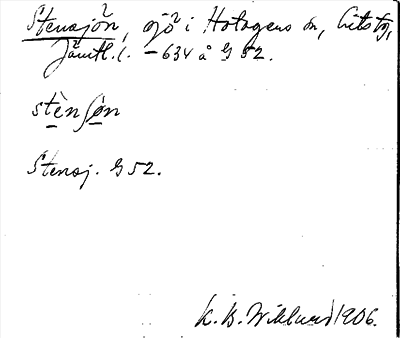 Stensjön, sjö i Hotagens sn, Lits tg,
Jämtl. l. – 634 å G 52.
stènʃø̀n
Stensj. G 52.
K. B. Wiklund 1906.